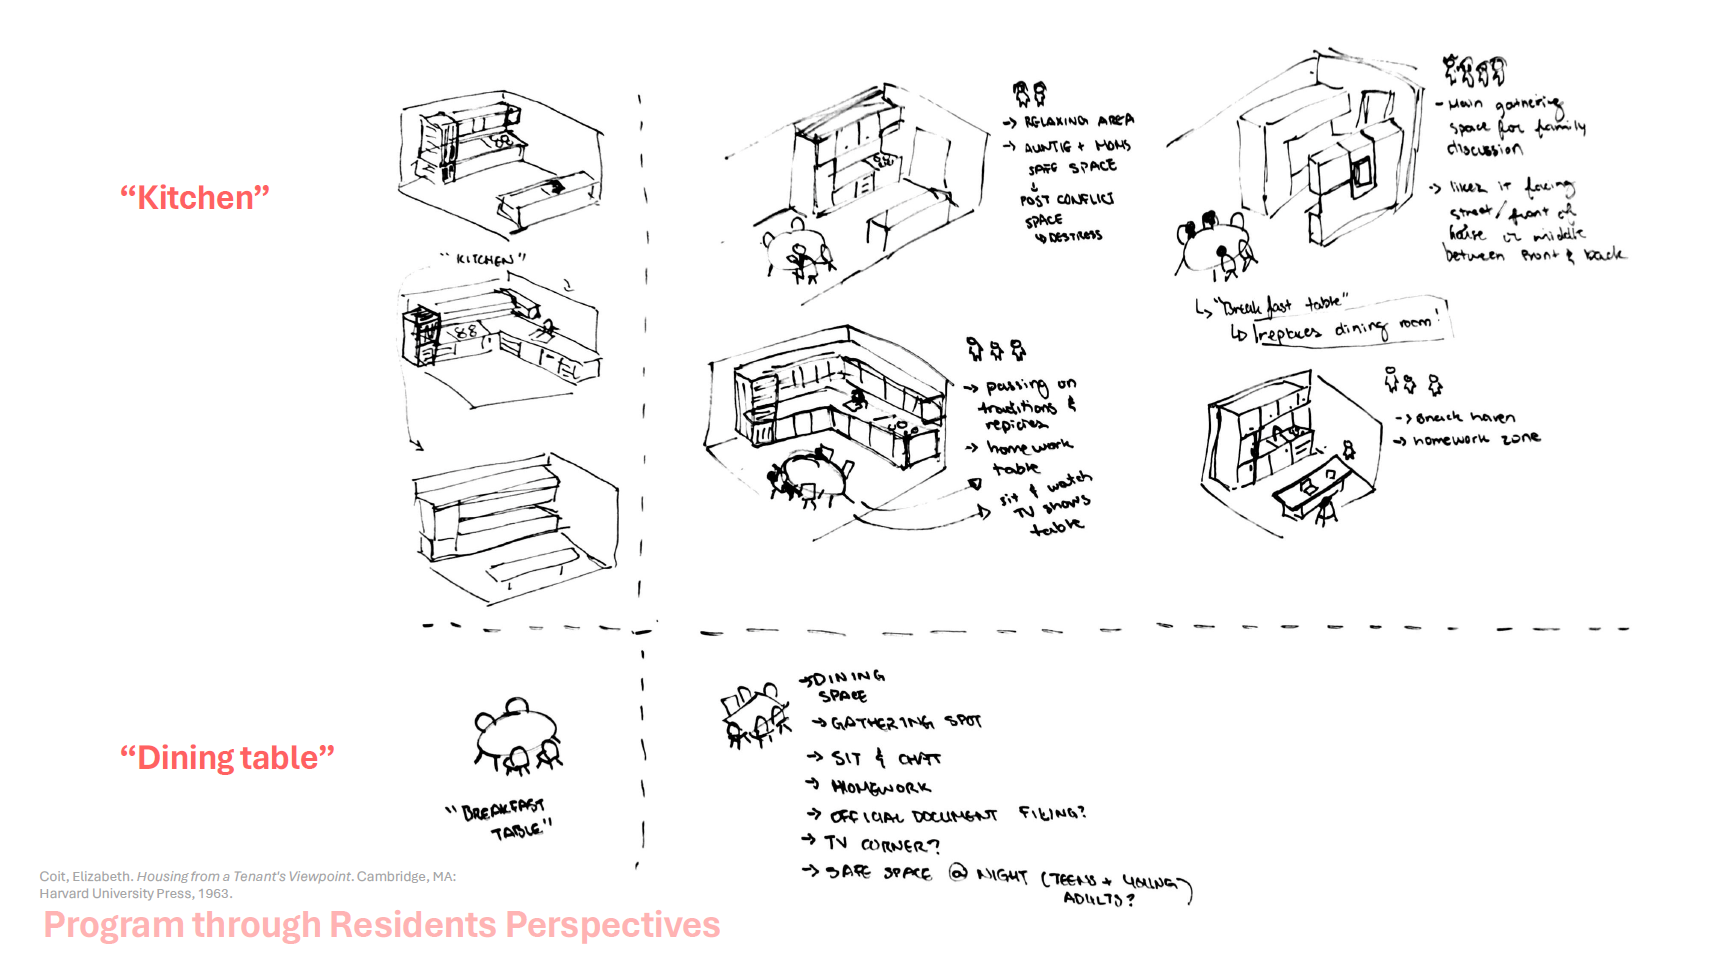 “Kitchen”
"KITCHEN"
→ RELAXING AREA
→ AUNTIE + MOMS
SAFE SPACE
↓
POST CONFLICT
SPACE
↳ DESTRESS
- Main gathering
space for family
discussion
→ likes it facing
street/front of
house or middle
between front & back
↳ "Breakfast table"
↳ replaces dining room!
→ passing on
traditions &
repicies
→ homework
table
sit & watch
TV shows
table
→ snack haven
→ homework zone
“Dining table”
"BREAKFAST
TABLE"
→ DINING
SPACE
→ GATHERING SPOT
→ SIT & CHAT
→ HOMEWORK
→ OFFICIAL DOCUMENT FILING?
→ TV CORNER?
→ SAFE SPACE @ NIGHT (TEENS + YOUNG
ADULTS?)
Coit, Elizabeth. Housing from a Tenant's Viewpoint. Cambridge, MA:
Harvard University Press, 1963.
Program through Residents Perspectives